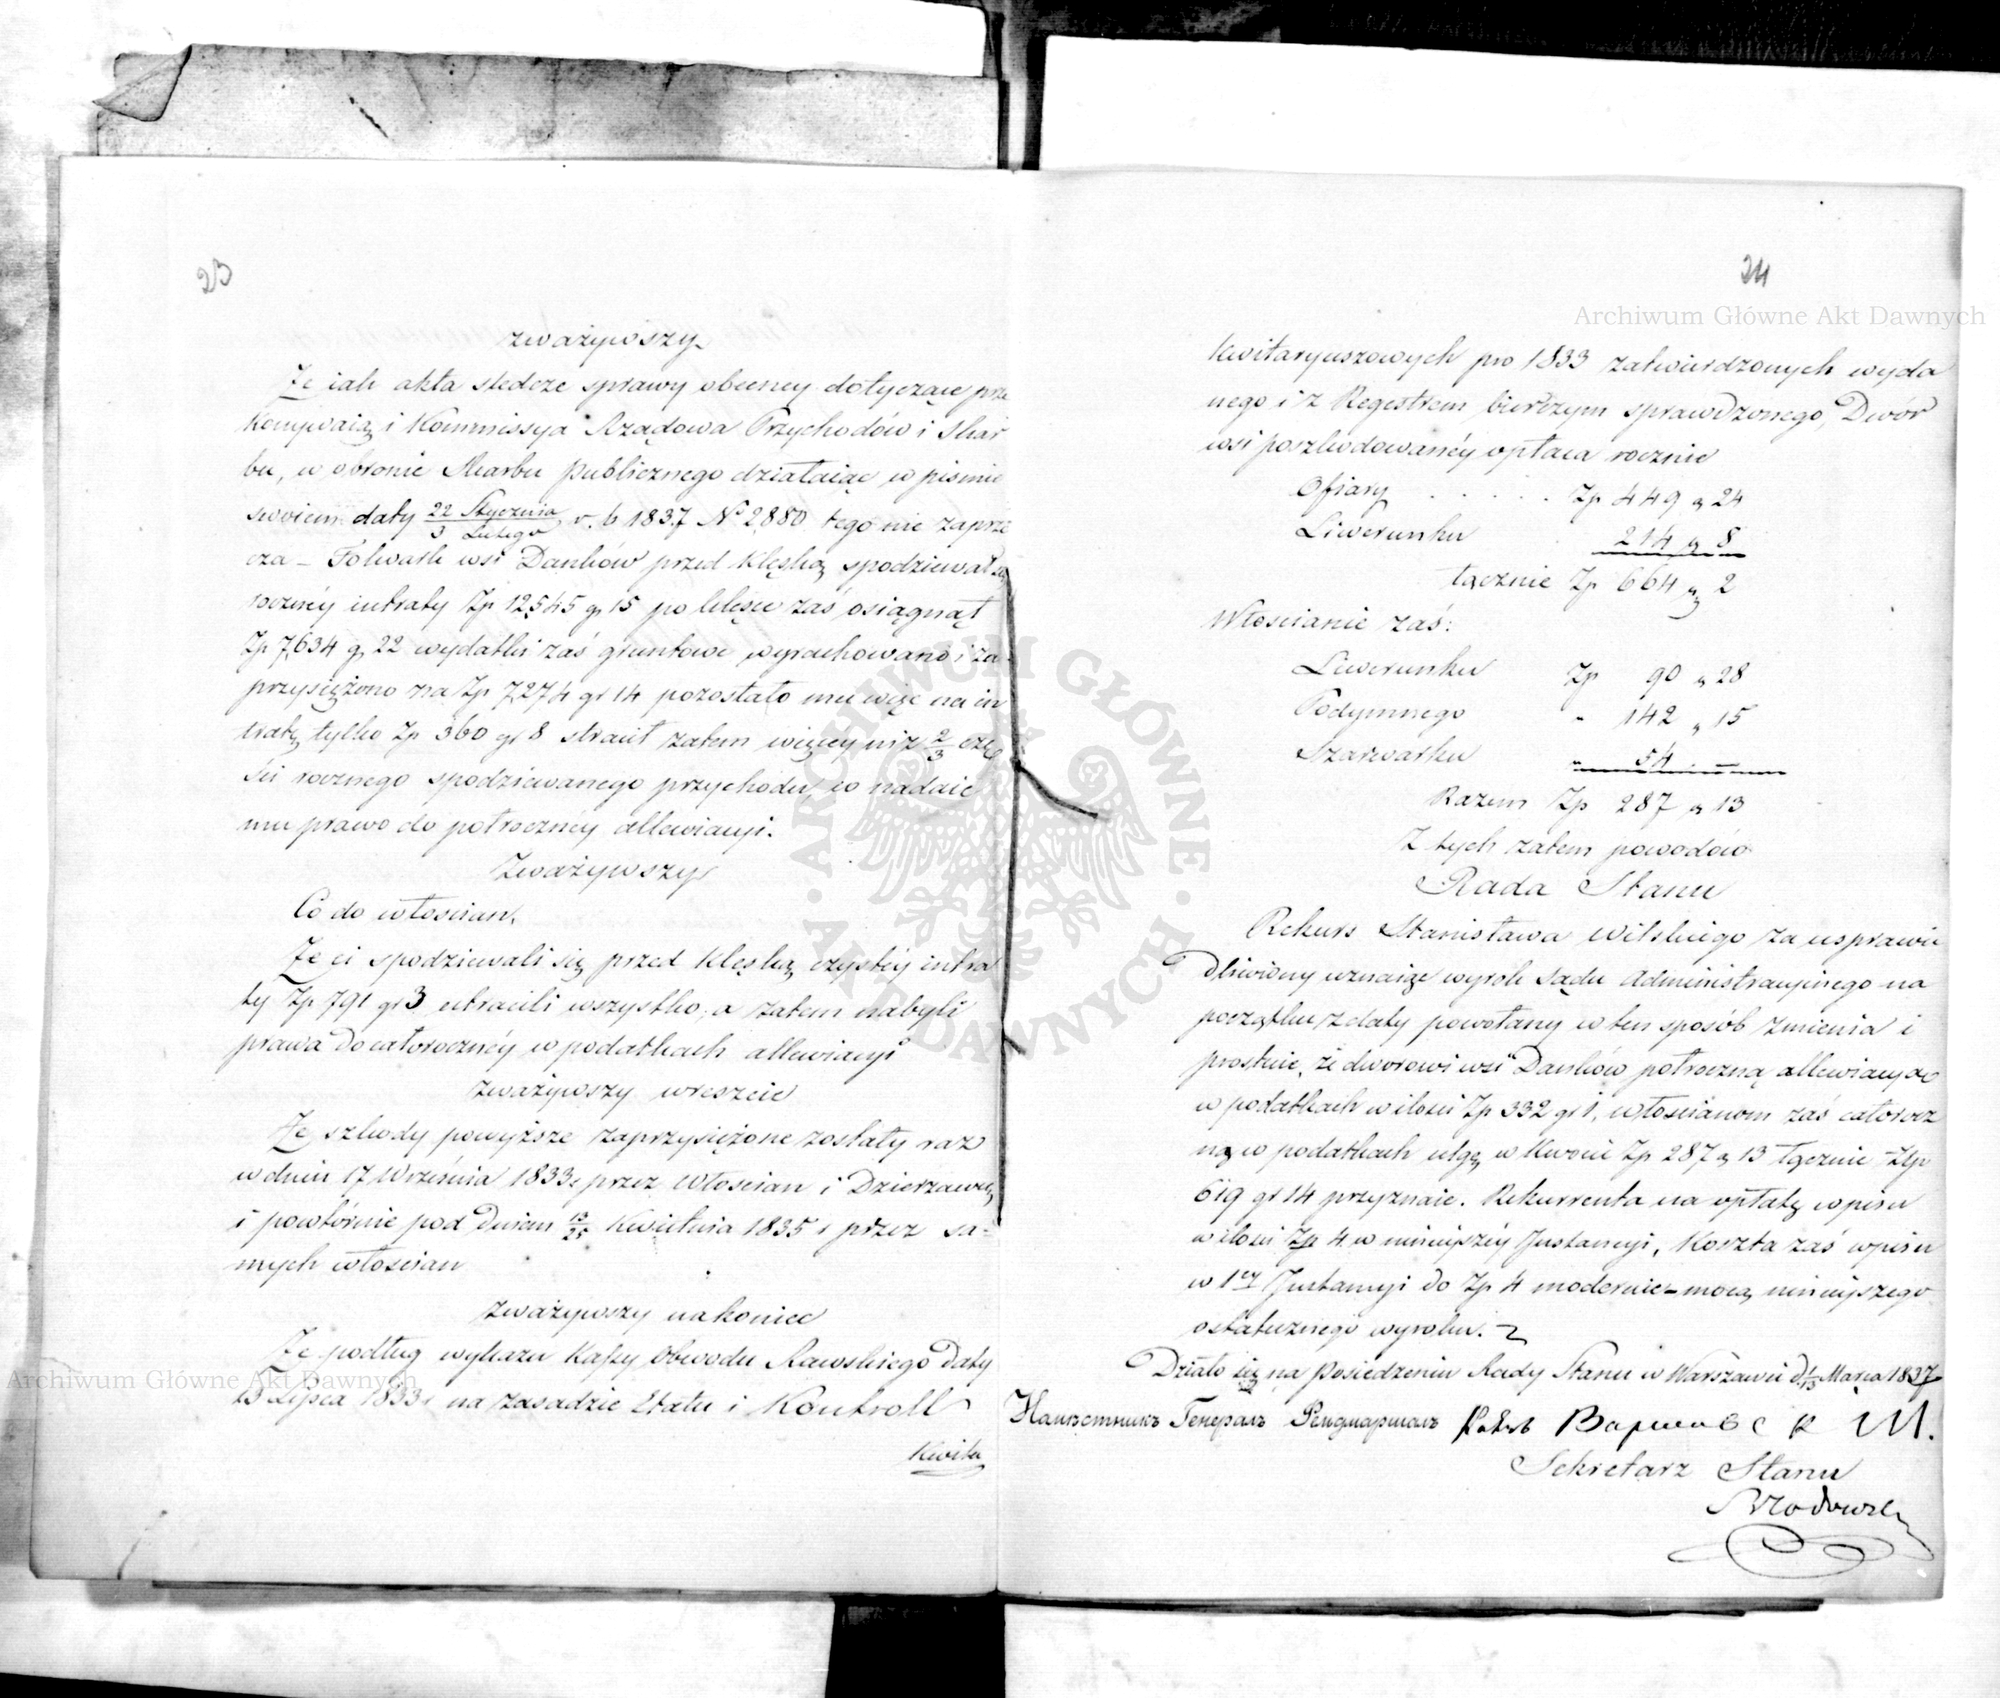 23
zważywszy
Że iak akta śledcze sprawy obecney dotyczące prze
konywaią i Kommissya Rządowa Przychodów i Skar
bu, w obronie Skarbu publicznego działaiąc w pismie
swoiem daty 22 Stycznia / 3 Lutego r. b 1837 No 2880 tego nie zaprze
cza – Folwark wsi Dańków przed klęską spodziewał się
roczney intraty Zp 12,545 g 15 po klęsce zaś osiągnął
Zp 7,634 g 22 wydatki zaś gruntowe wyrachowano i za-
przysiężono na Zp 7,274 gr 14 pozostało mu więc na in
tratę tylko Zp 360 gr 8 stracił zatem więcey niż 2/3 czę
ści rocznego spodziewanego przychodu, co nadaie
mu prawo do półroczney allewiacyi.
Zważywszy
Co do włościan.
Że ci spodziewali się przed klęską czystey intra
ty Zp 791 gr 3 utracili wszystko; a zatem nabyli
prawa do całoroczney w podatkach allewiacyi
zważywszy wreszcie
Że szkody powyższe zaprzysiężone zostały raz
w dniu 17 Września 1833 r przez Włościan i Dzierzawcę
i powtórnie pod dniem 13/25 Kwietnia 1835 r przez sa-
mych włościan
zważywszy nakoniec
Że podług wykazu Kassy Obwodu Rawskiego daty
13 Lipca 1833 r na zasadzie Etatu i Kontroll
Kwita
24
Kwitaryuszowych pro 1833 zatwierdzonych wyda
nego i z Regestrem bierczym sprawdzonego, Dwór
wsi poszkodowaney opłaca rocznie
Ofiary . . . . . Zp 449 g 24
Liwerunku 214 g 8
łącznie Zp 664 g 2
Włościanie zaś:
Liwerunku Zp 90 g 28
Podymnego " 142 " 15
Szarwarku " 54 " –
Razem Zp 287 g 13
Z tych zatem powodów
Rada Stanu
Rekurs Stanisława Wilskiego za usprawie
dliwiony uznaiąc wyrok Sądu Administracyinego na
początku z daty powołany w ten sposób zmienia i
prostuie, że dworowi wsi Dańków półroczną allewiacyę
w podatkach w ilości Zp 332 gr 1, włościanom zaś całorocz
ną w podatkach ulgę w kwocie Zp 287 g 13 łącznie Złp
619 gr 14 przyznaie. Rekurrenta na opłatę wpisu
w ilości Zp 4 w ninieyszey Instancyi, Koszta zaś wpisu
w 1ey Instancyi do Zp 4 moderuie – mocą ninieyszego
ostatecznego wyroku.
Działo się na Posiedzeniu Rady Stanu w Warszawie d. 1/13 Marca 1837
Намѣстникъ Генералъ Фельдмаршалъ Князь Варшавск
Sekretarz Stanu
Archiwum Główne Akt Dawnych
Archiwum Główne Akt Dawnych
· ARCHIWUM GŁÓWNE · AKT DAWNYCH ·